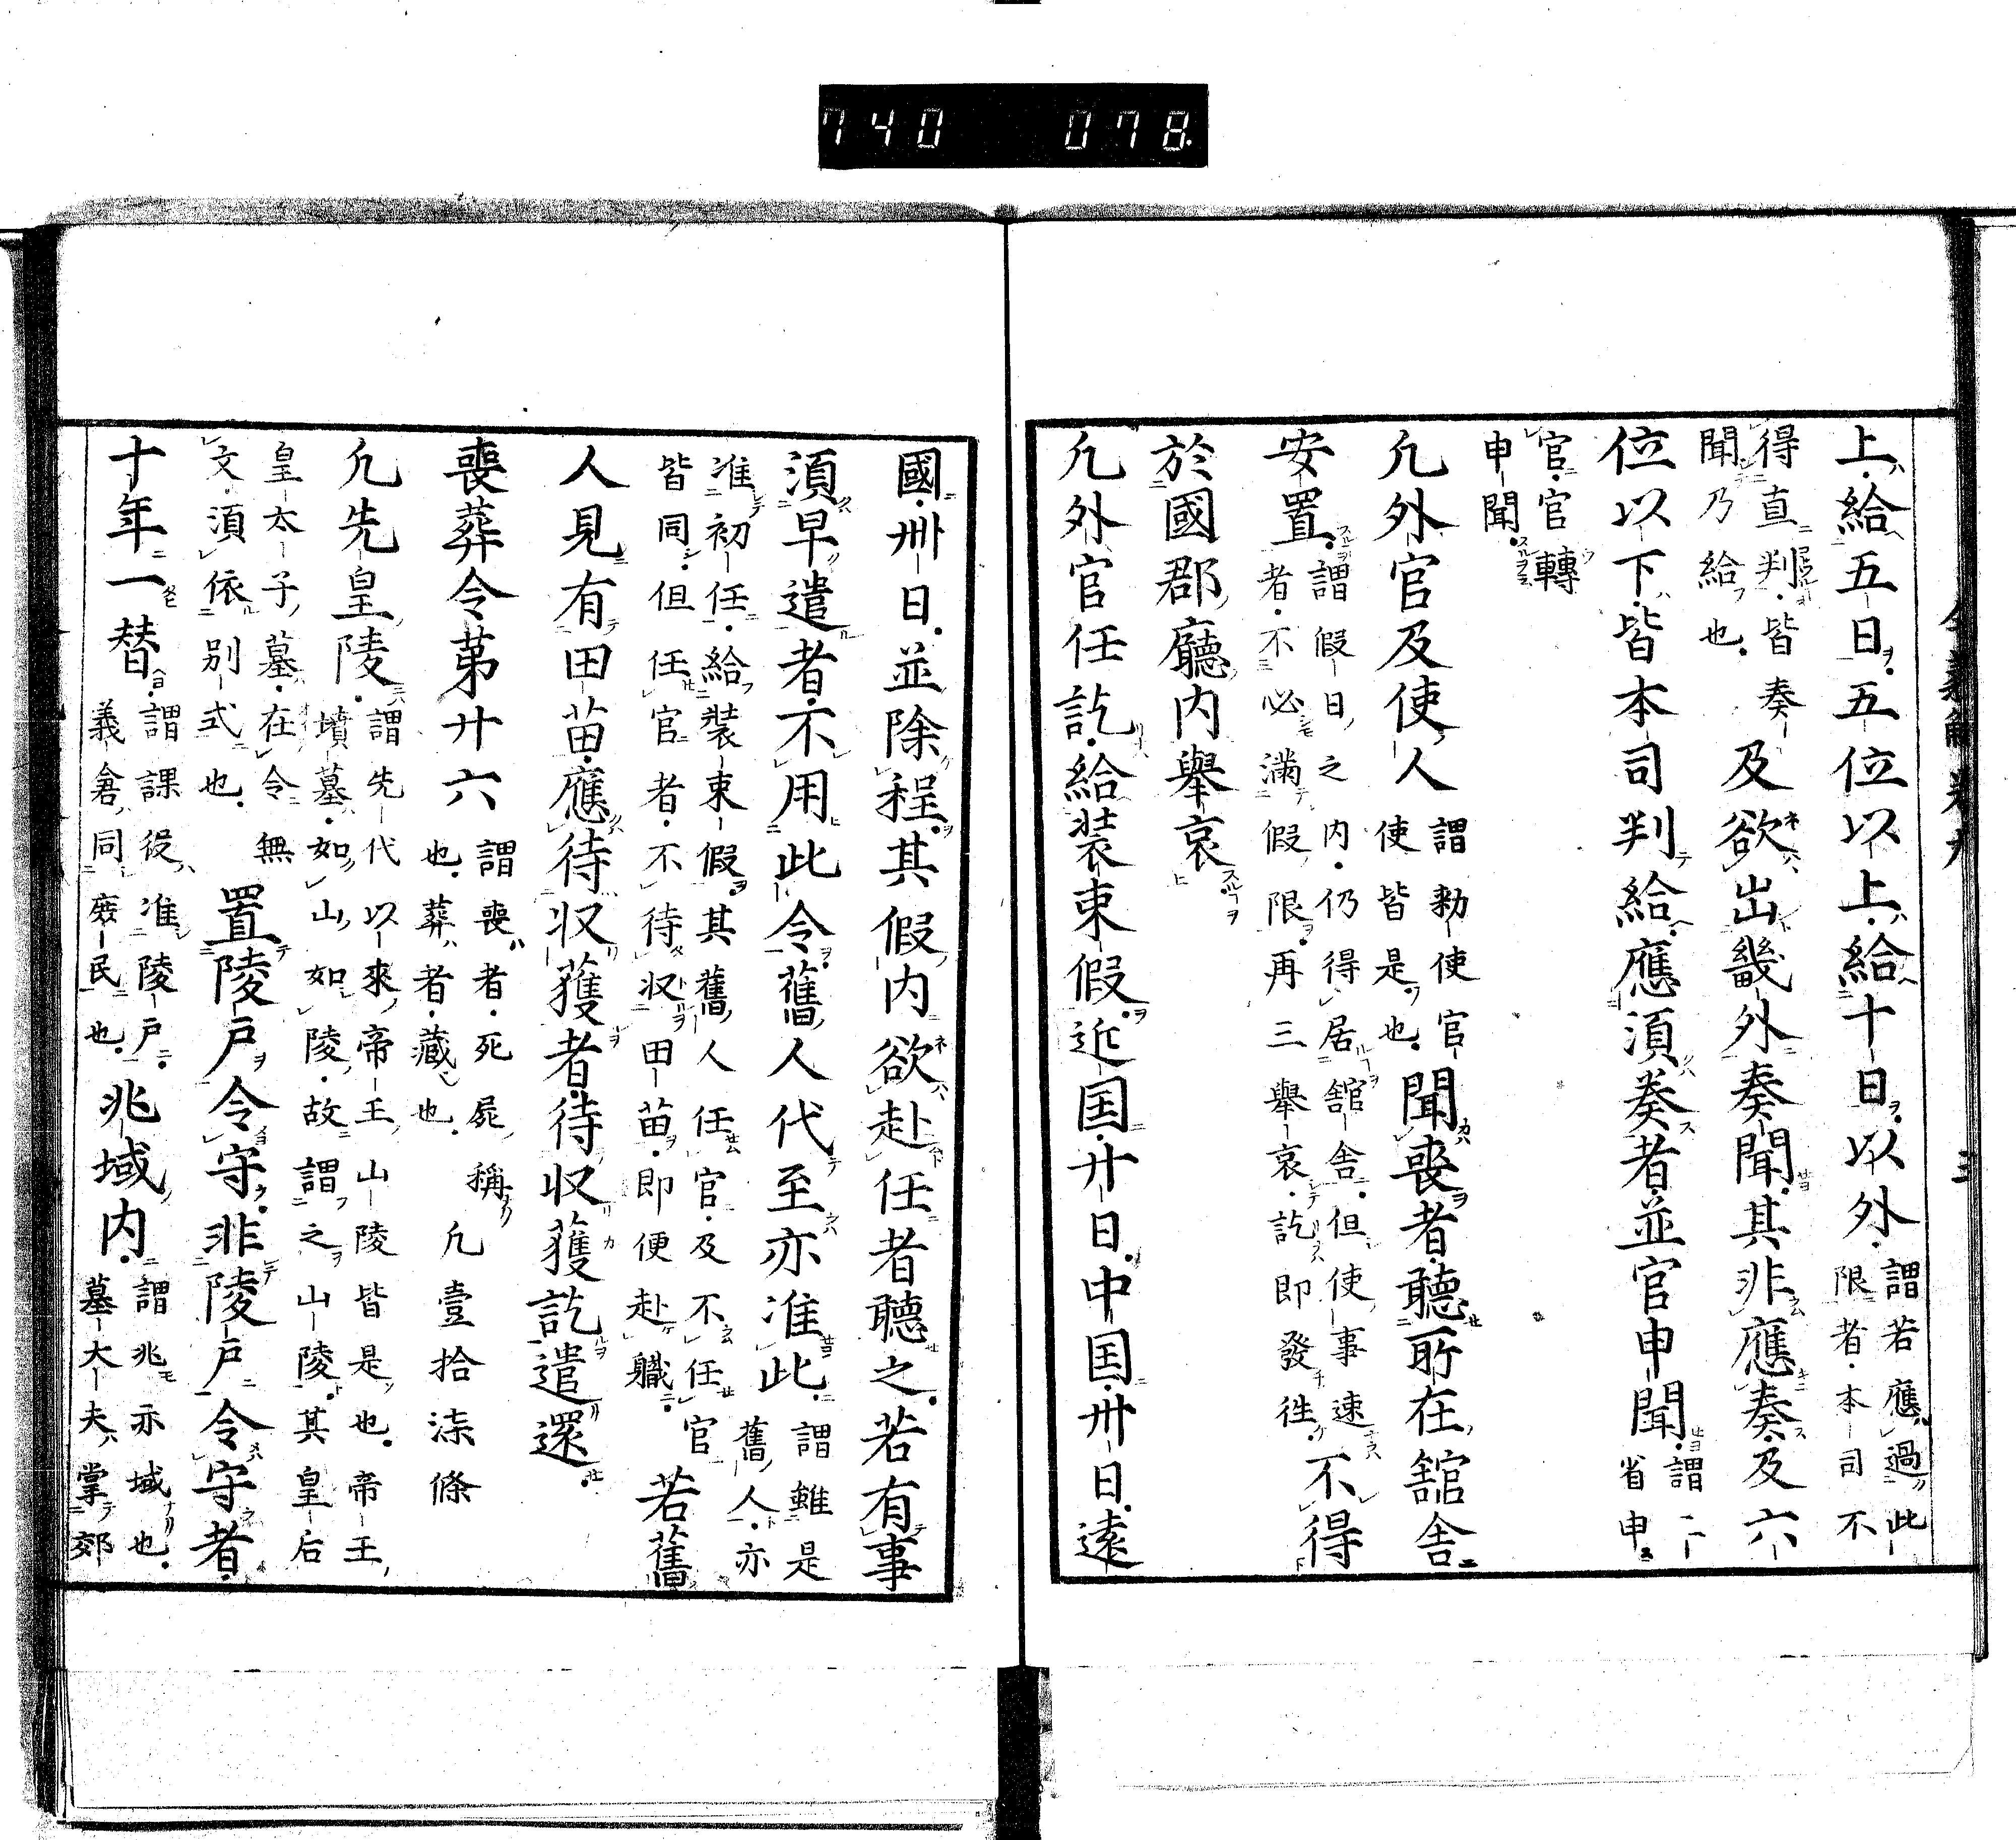 740 078.
令義解 巻九 三
上給五日五位以上給十日以外謂若應過此限者本司不
得直判皆奏聞乃給也及欲出畿外奏聞其非應奏及六
位以下皆本司判給應須奏者並官申聞謂二省申
官官轉申聞
凡外官及使人謂勅使官使皆是也聞喪者聽所在舘舎
安置謂假日之内仍得居舘舎但使事速者不必滿假限再三舉哀訖即發徃不得
於國郡廳内舉哀
凡外官任訖給装束假近国廿日中国卅日遠
國卌日並除程其假内欲赴任者聽之若有事
須早遣者不用此令舊人代至亦准此謂雖是舊人亦
准初任給装束假其舊人任官及不任官皆同但任官者不待収田苗即便赴職若舊
人見有田苗應待収獲者待収獲訖遣還
喪葬令第廿六謂喪者死屍稱也葬者藏也凡壹拾柒條
凡先皇陵謂先代以來帝王山陵皆是也帝王墳墓如山如陵故謂之山陵其皇后
皇太子墓在令無文須依別式也置陵戸令守非陵戸令守者
十年一替謂課役准陵戸義倉同廢民也兆域内謂兆亦域也墓大夫掌郊